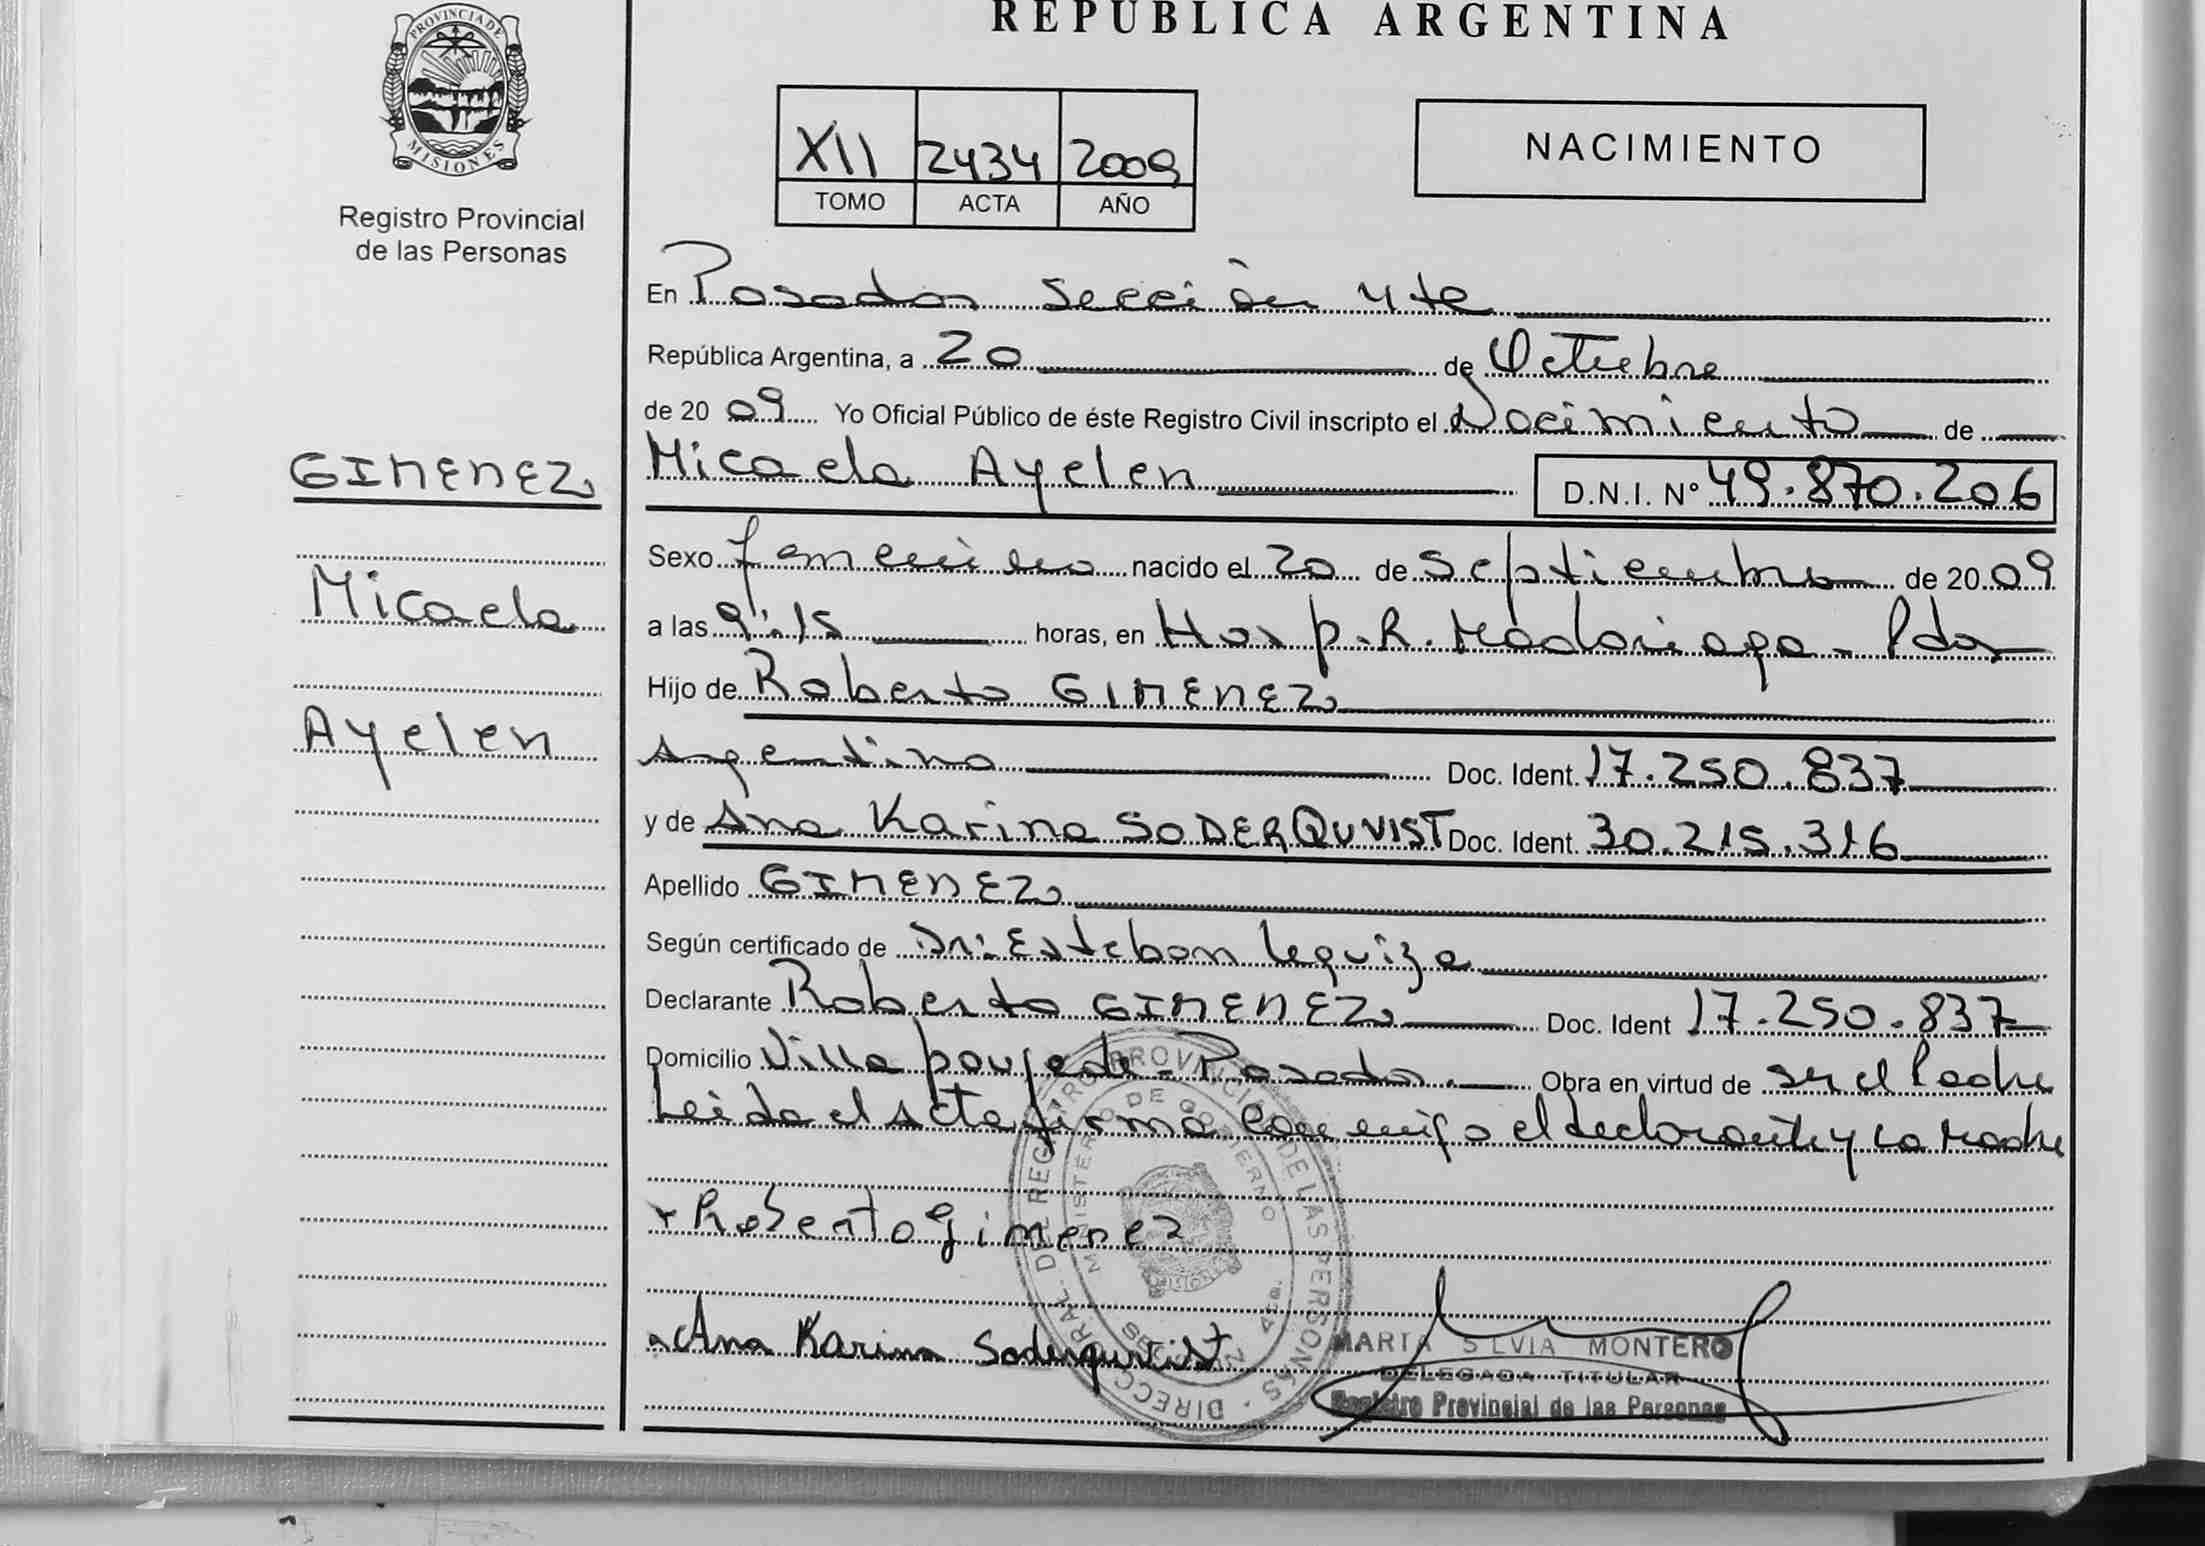 REPÚBLICA ARGENTINA
PROVINCIA DE
MISIONES
Registro Provincial
de las Personas
XII 2434 2009
TOMO ACTA AÑO
NACIMIENTO
GIMENEZ
Micaela
Ayelen
En Posadas Sección 4ta
República Argentina, a 20 de Octubre
de 2009 Yo Oficial Público de éste Registro Civil inscripto el Nacimiento de
Micaela Ayelen D.N.I. Nº 49.870.206
Sexo femenino nacido el 20 de Septiembre de 2009
a las 9:15 horas, en Hosp. R. Madariaga - Pdas
Hijo de Roberto GIMENEZ
Argentino Doc. Ident. 17.250.837
y de Ana Karina SODERQUVIST Doc. Ident. 30.215.316
Apellido GIMENEZ
Según certificado de Dr: Esteban Leguiza
Declarante Roberto GIMENEZ Doc. Ident 17.250.837
Domicilio Villa - Posadas. Obra en virtud de ser el Padre
Leida el Acta firma conmigo el declarante y la Madre
Roberto Gimenez
Ana Karina Soderquvist
DIRECC GRAL. DE REGISTRO PROVINCIAL DE LAS PERSONAS
MINISTERIO DE GOBIERNO
SECCION 4ta.
MISIONES
MARIA SILVIA MONTERO
DELEGADA TITULAR
Registro Provincial de las Personas